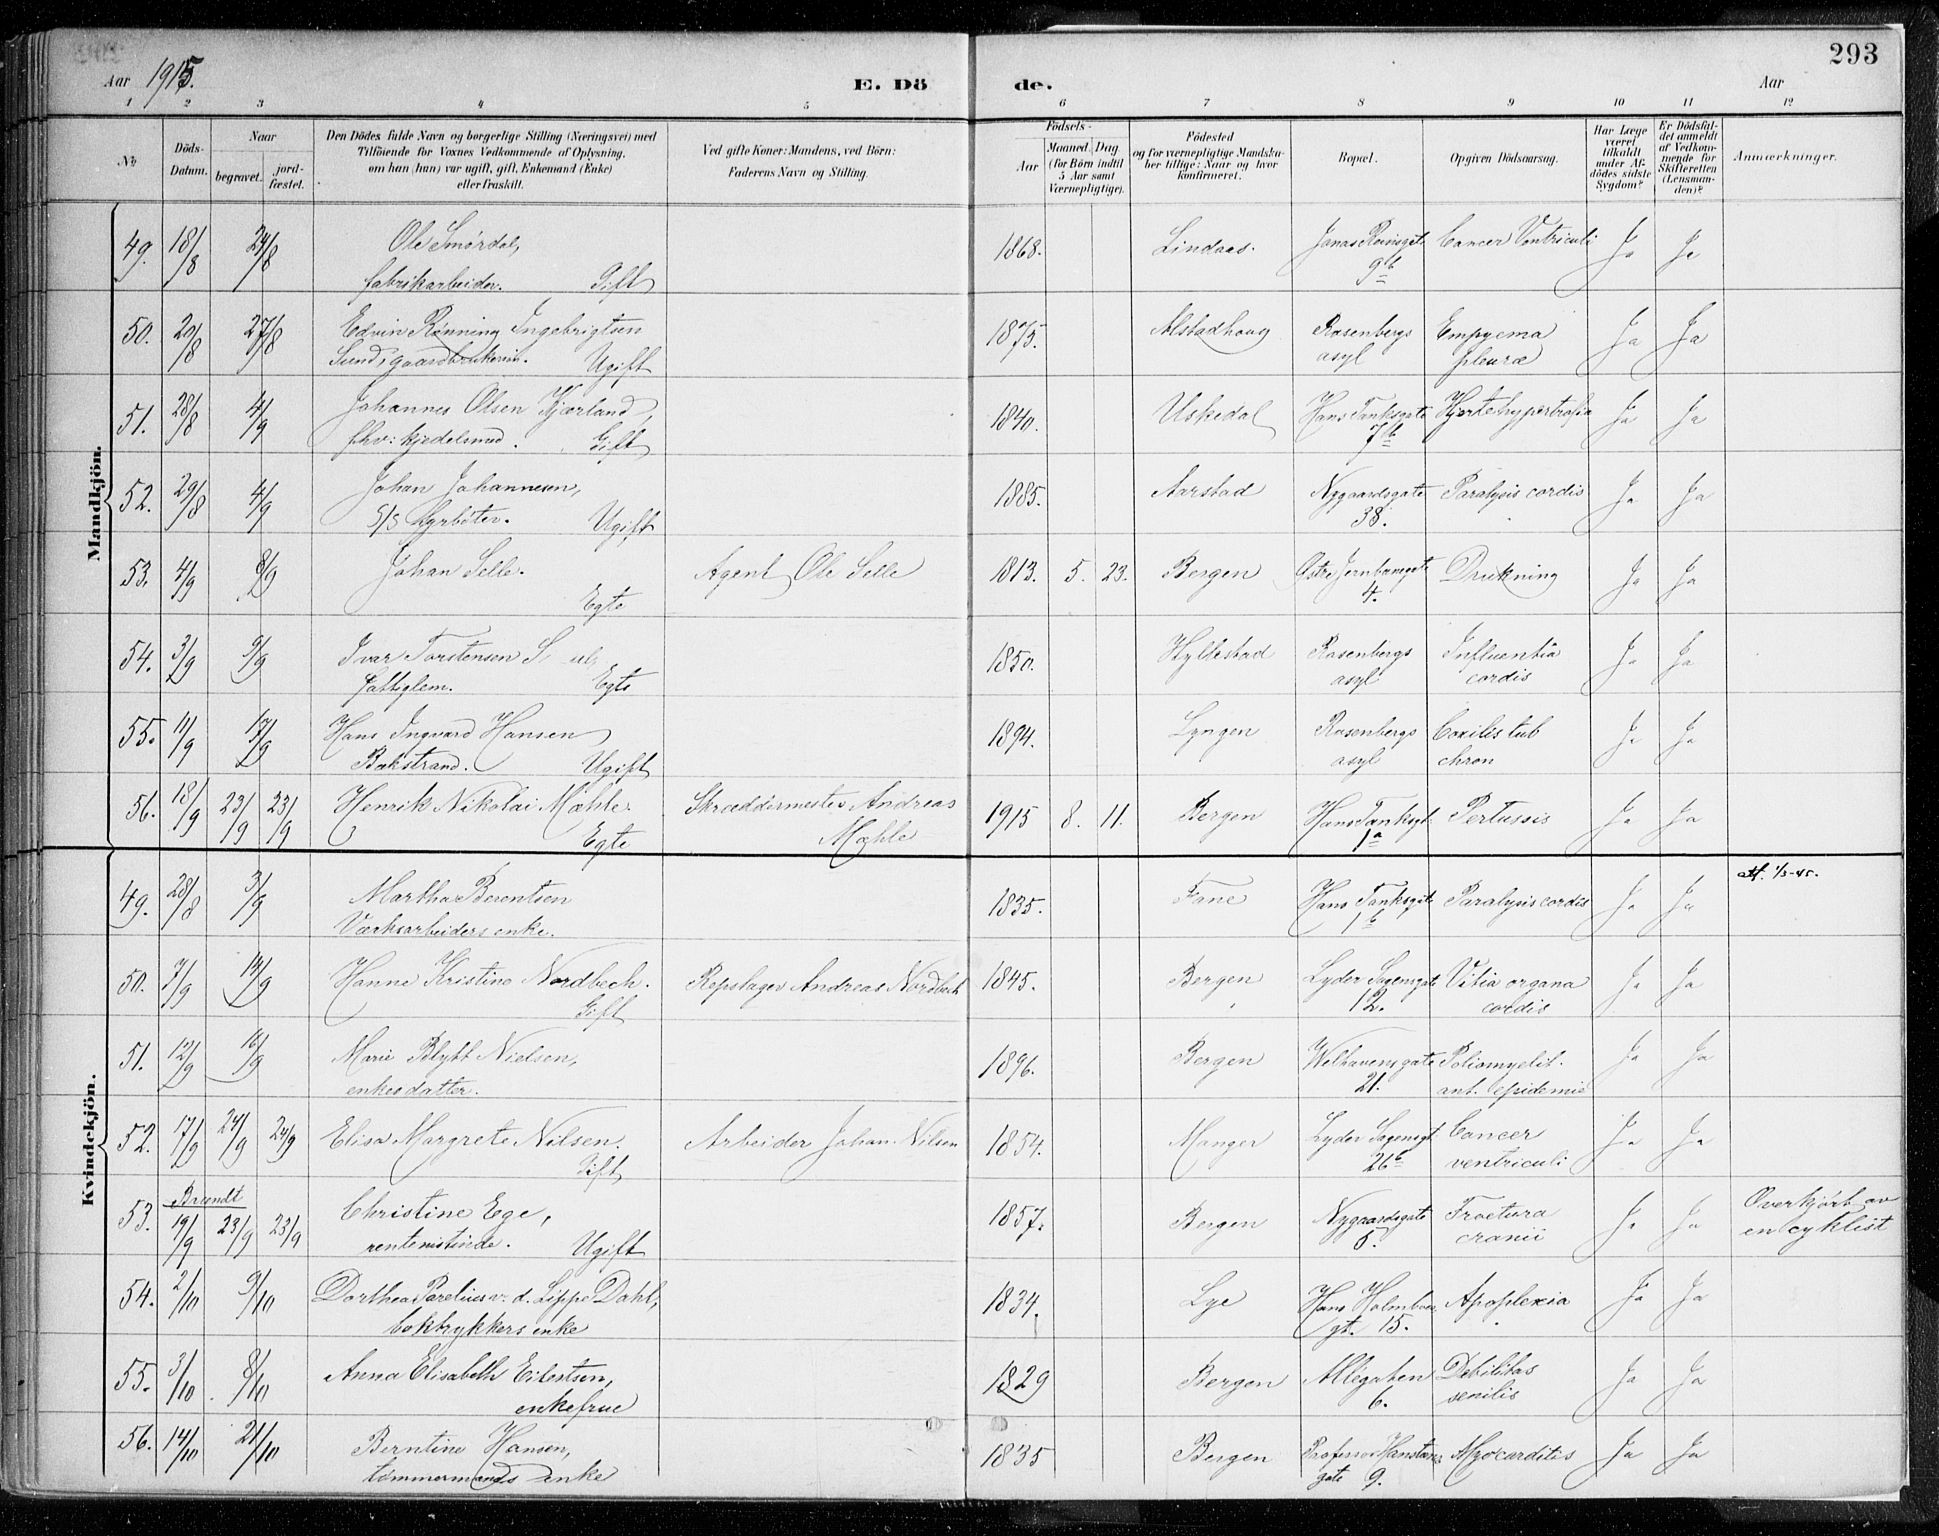 293
Aar 1915.
E. Dö
de.
Aar
1 2 3 4 5 6 7 8 9 10 11 12
No
Döds-Datum.
Naar
begravet.
jord-fæstet.
Den Dödes fulde Navn og borgerlige Stilling (Næringsvei) med
Tilföiende for Voxnes Vedkommende af Oplysning,
om han (hun) var ugift, gift, Enkemand (Enke)
eller fraskilt.
Ved gifte Koner: Mandens, ved Börn:
Faderens Navn og Stilling.
Födsels-
Aar
Maaned. Dag
(for Börn indtil
5 Aar samt
Værnepligtige).
Födested
og for værnepligtige Mandska-
ber tillige: Naar og hvor
konfirmeret.
Bopæl.
Opgiven Dödsaarsag.
Har Læge
været
tilkaldt
under Af-
dödes sidste
Sygdom?
Er Dödsfal-
det anmeldt
af Vedkom-
mende for
Skifteretten
(Lensman-
den)?
Anmærkninger.
Mandkjön.
49. 18/8 24/8 Ole Smördal, 1868. Lindaas. Jonas Reinsgate Cancer Ventriculi Ja Ja
fabrikarbeider. Gift 9b
50. 20/8 27/8 Edvin Rønning Ingebrigtsen 1875. Alstadhoug Rosenbergs Empyema Ja Ja
Ugift asyl pleuræ
51. 28/8 4/9 Johannes Olsen Kjærland, 1840. Uskedal Hans Tanksgate Hjertehypertrofia Ja Ja
fhv: kjedelsmed. Gift 7b
52. 29/8 4/9 Johan Johannesen, 1885. Aarstad Nygaardsgate Paralysis cordis Ja Ja
S/S fyrbøter. Ugift 38.
53. 4/9 8/9 Johan Selle. Agent Ole Selle 1813. 5. 23. Bergen Østre Jernbanegate Drukning Ja Ja
Egte 4.
54. 3/9 9/9 Ivar Torstensen 1850. Hyllestad Rosenbergs Influentia Ja Ja
fattiglem. Egte asyl cordis
55. 11/9 17/9 Hans Ingvard Hansen 1894. Lyngen Rosenbergs Coxitis tub Ja Ja
Bakstrand. Ugift asyl chron
56. 18/9 23/9 23/9 Henrik Nikolai Mæhle. Skræddermester Andreas 1915 8. 11. Bergen Hans Tanksgt. Pertussis Ja Ja
Egte Mæhle 1a
Kvindekjön.
49. 28/8 3/9 Martha Berentsen 1835. Fane Hans Tanksgate Paralysis cordis Ja Ja
Værksarbeiders enke. 1b
50. 7/9 14/9 Hanne Kristine Nordbech. Repslager Andreas Nordbech 1845. Bergen Lyder Sagensgate Vitia organa Ja Ja
Gift 12. cordis
51. 12/9 16/9 Marie Blytt Nielsen, 1896. Bergen Welhavensgate Poliomyelit. Ja Ja
enkesdatter. 21. ant. epidemic
52. 17/9 24/9 24/9 Elisa Margrete Nilsen. Arbeider Johan Nilsen 1854. Manger Lyder Sagensgt. Cancer Ja Ja
Gift 26b ventriculi
Brændt
53. 19/9 23/9 23/9 Christine Ege, 1857. Bergen Nygaardsgate Fractura Ja Ja Overkjørt av
rentenistinde. Ugift 5. cranii en cyklist
54. 2/10 9/10 Dorthea Parelius v. d. Lippe Dahl, 1834. Lye Hans Holmboes Apoplexia Ja Ja
boktrykkers enke gt. 15.
55. 3/10 8/10 Anna Elisabeth Eilertsen, 1829 Bergen Allégaten Debilitas Ja Ja
enkefrue 6. senilis
56. 14/10 21/10 Berntine Hansen, 1835 Bergen Professor Hansteens Myocarditis Ja Ja
tømmermands enke gate 9.